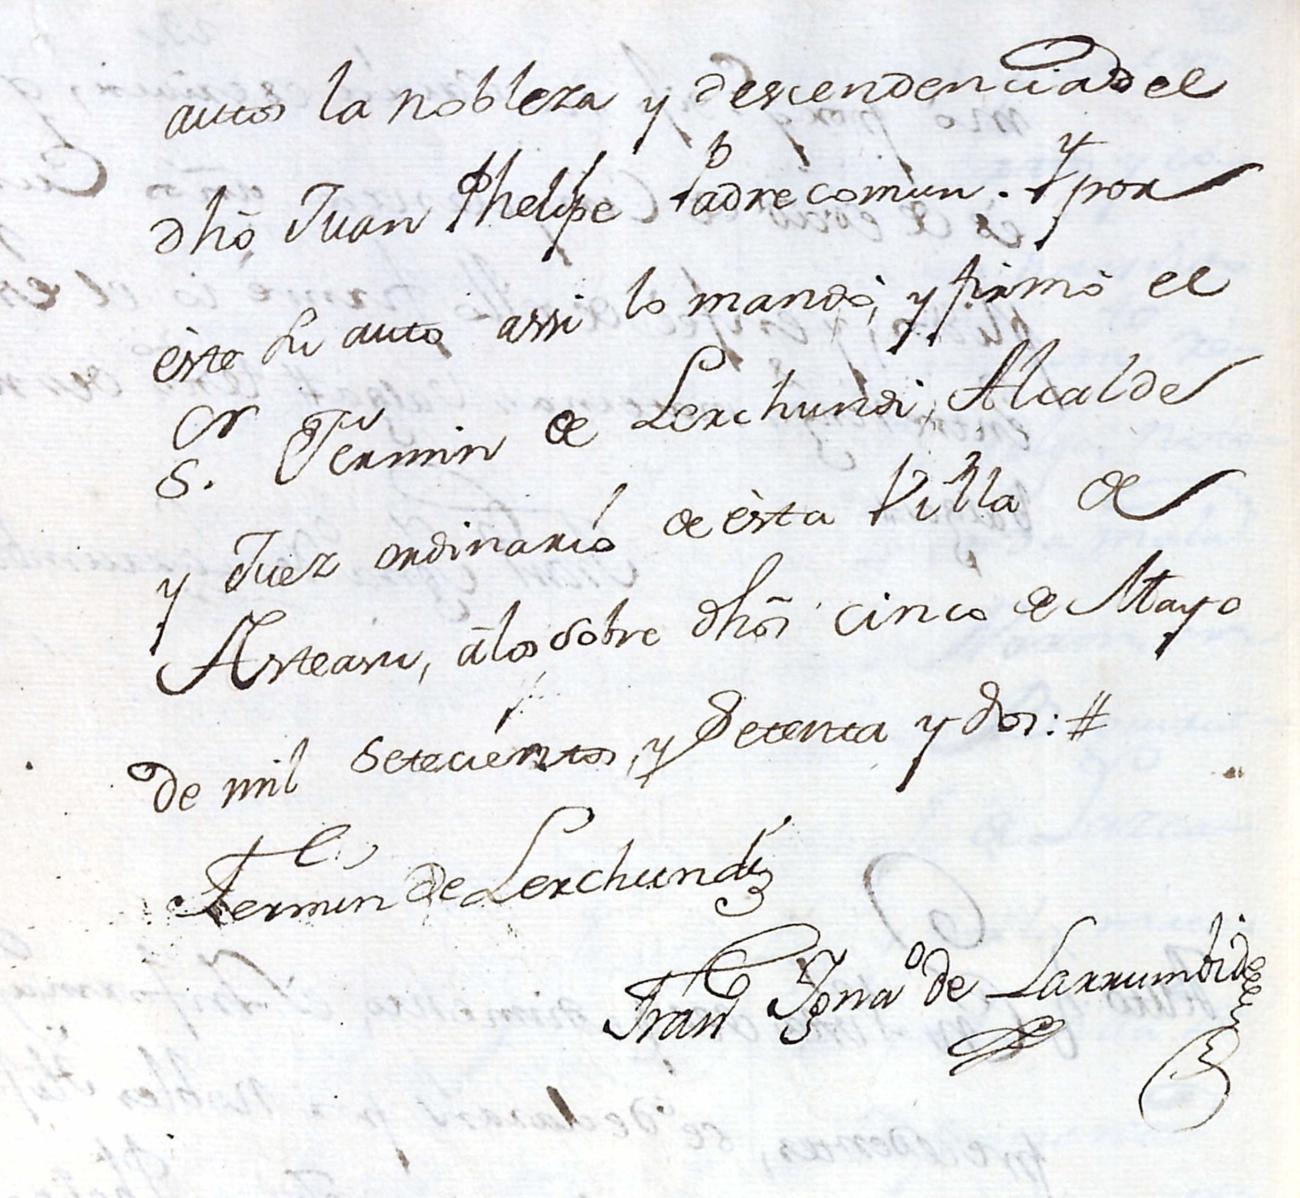 autos la nobleza y descendencia del
dhõ Juan Phelipe Padre comun. Y por
èste su auto assi lo mandò, y firmò el
S.or Fermin de Lerchundi, Alcalde
y Juez ordinario de èsta Villa de
Asteasu, à los sobre dhõs cinco de Mayo
de mil setecientos, y setenta y dos: #
Fermin de Lerchundi
Fran.co Igna.o de Larrumbide